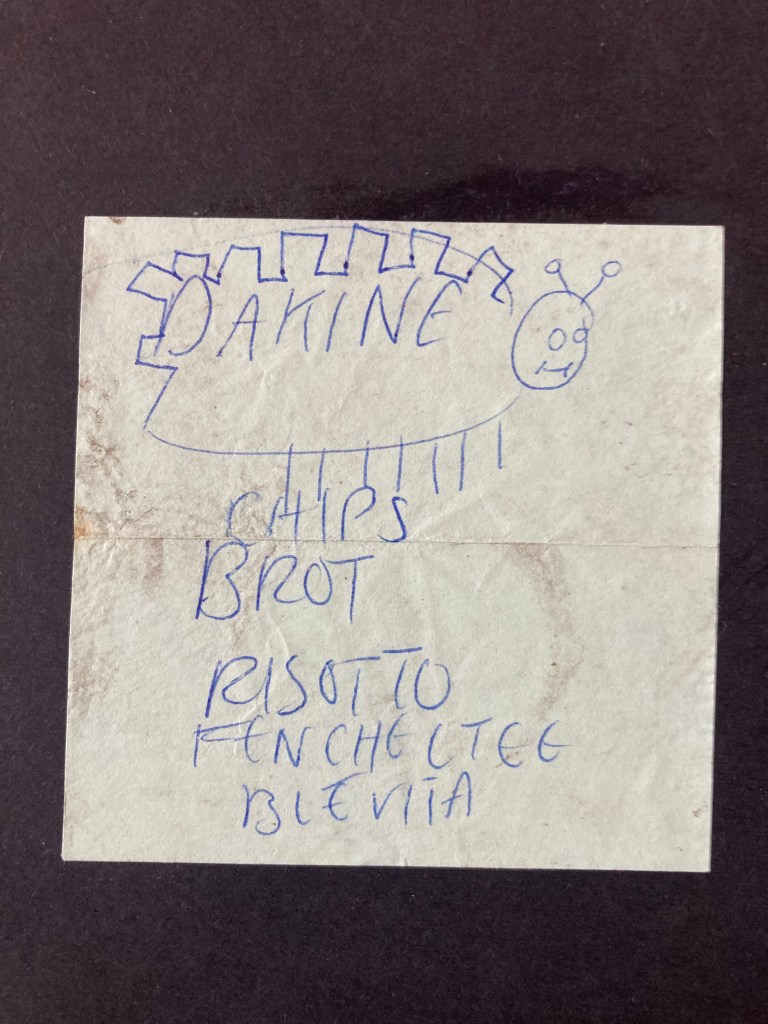 DAKINE
CHIPS
BROT
RISOTTO
FENCHELTEE
BLEVITA